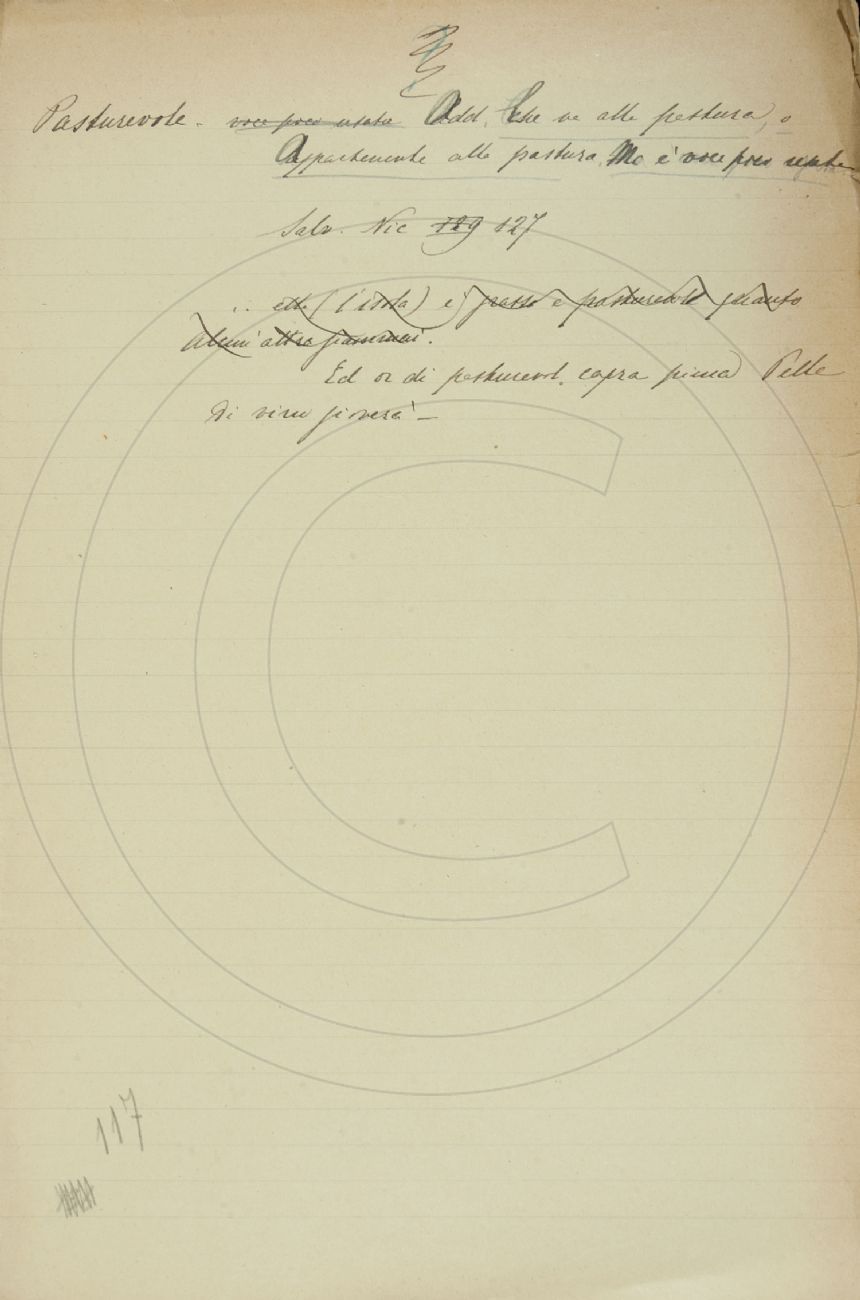 Pasturevole - voce poco usata Add. Che va alla pastura, o
Appartenente alla pastura. Ma è voce poco usata
Salv. Nic 129 127
.. ella (l'isola) è grassa e pasturevole quanto
alcun'altra giammai.
Ed or di pasturevol. capra piena Pelle
di vino pioverà -
117